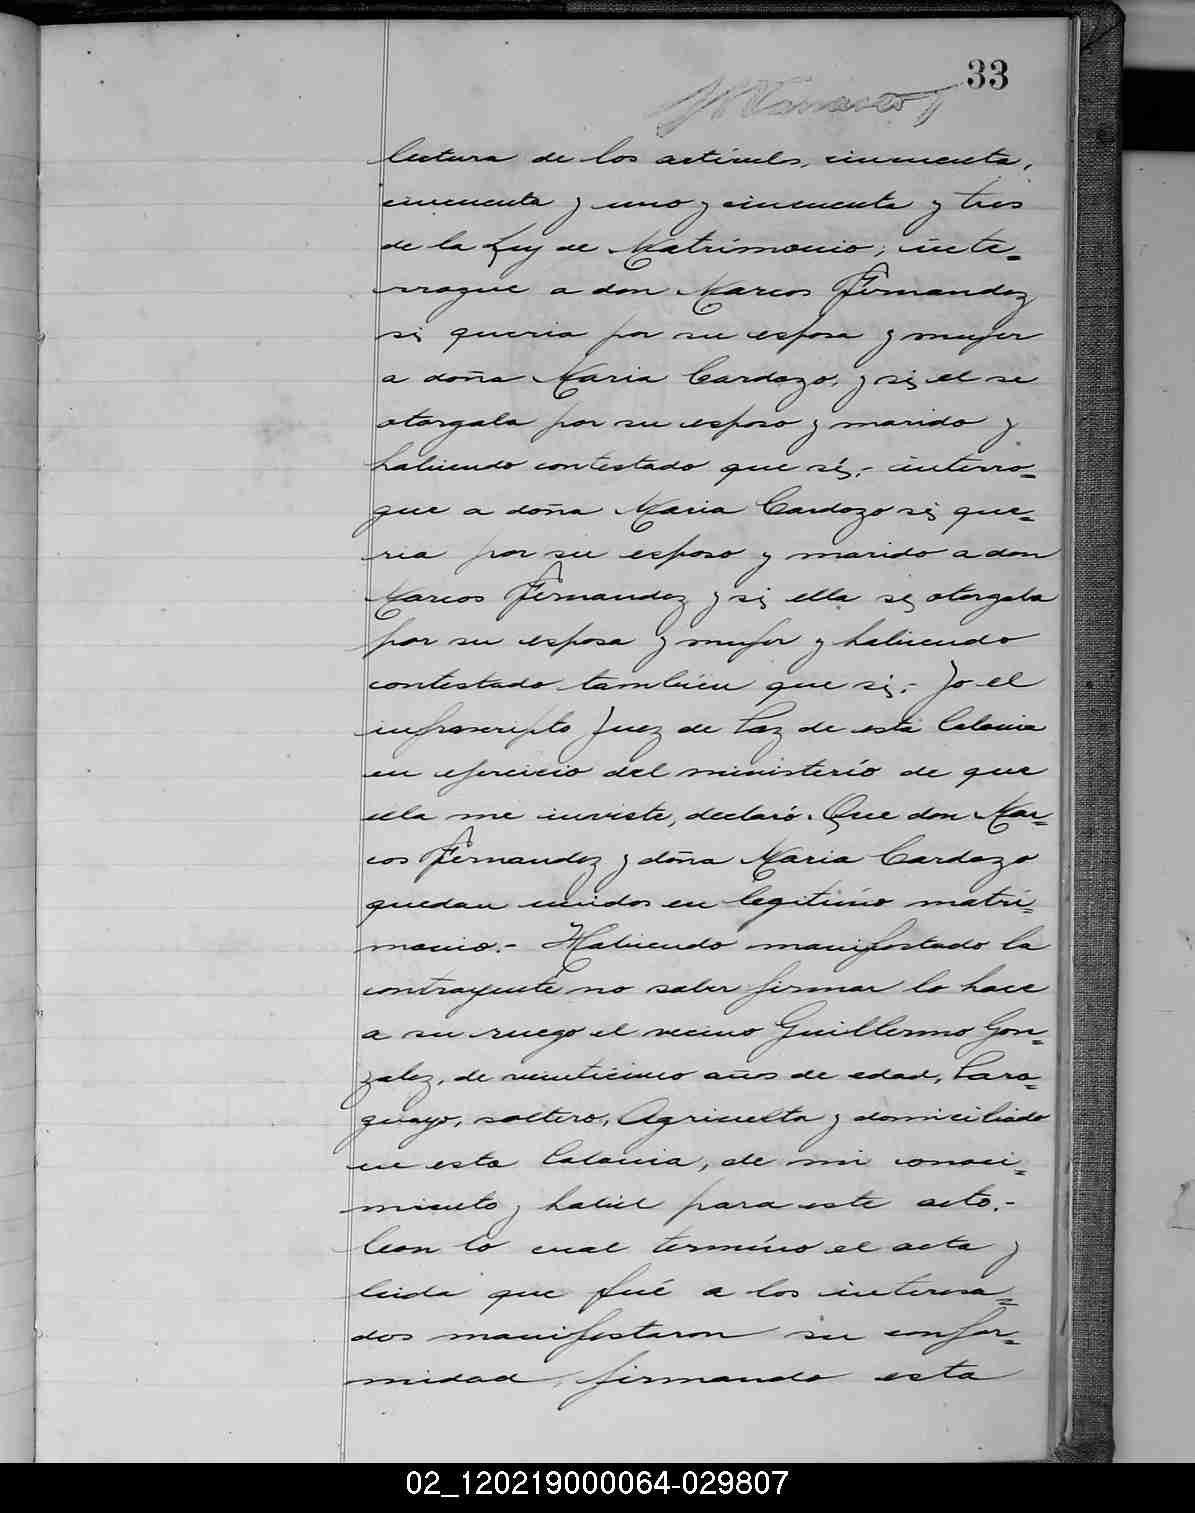 33
lectura de los articulos, cincuenta,
cincuenta y uno y cincuenta y tres
de la Ley de Matrimonio; inte=
rrogue a don Marcos Fernandez
si queria por su esposa y mujer
a doña Maria Cardozo, y si el se
otorgaba por su esposo y marido y
habiendo contestado que si,- interro=
gue a doña Maria Cardozo si que=
ria por su esposo y marido a don
Marcos Fernandez y si ella se otorgaba
por su esposa y mujer y habiendo
contestado tambien que si.- Yo el
infrascripto Juez de Paz de esta Colonia
en ejercicio del ministerio de que
ella me inviste, declaró. Que don Mar=
cos Fernandez y doña Maria Cardozo
quedan unidos en legitimo matri=
monio.- Habiendo manifestado la
contrayente no saber firmar lo hace
a su ruego el vecino Guillermo Gon=
zalez, de veinticinco años de edad, Para=
guayo, soltero, Agricult y domiciliado
en esta Colonia, de mi conoci=
miento y habil para este acto.-
Con lo cual termino el acta y
leida que fué a los interesa=
dos manifestaron su confor=
midad, firmando esta
02_120219000064-029807